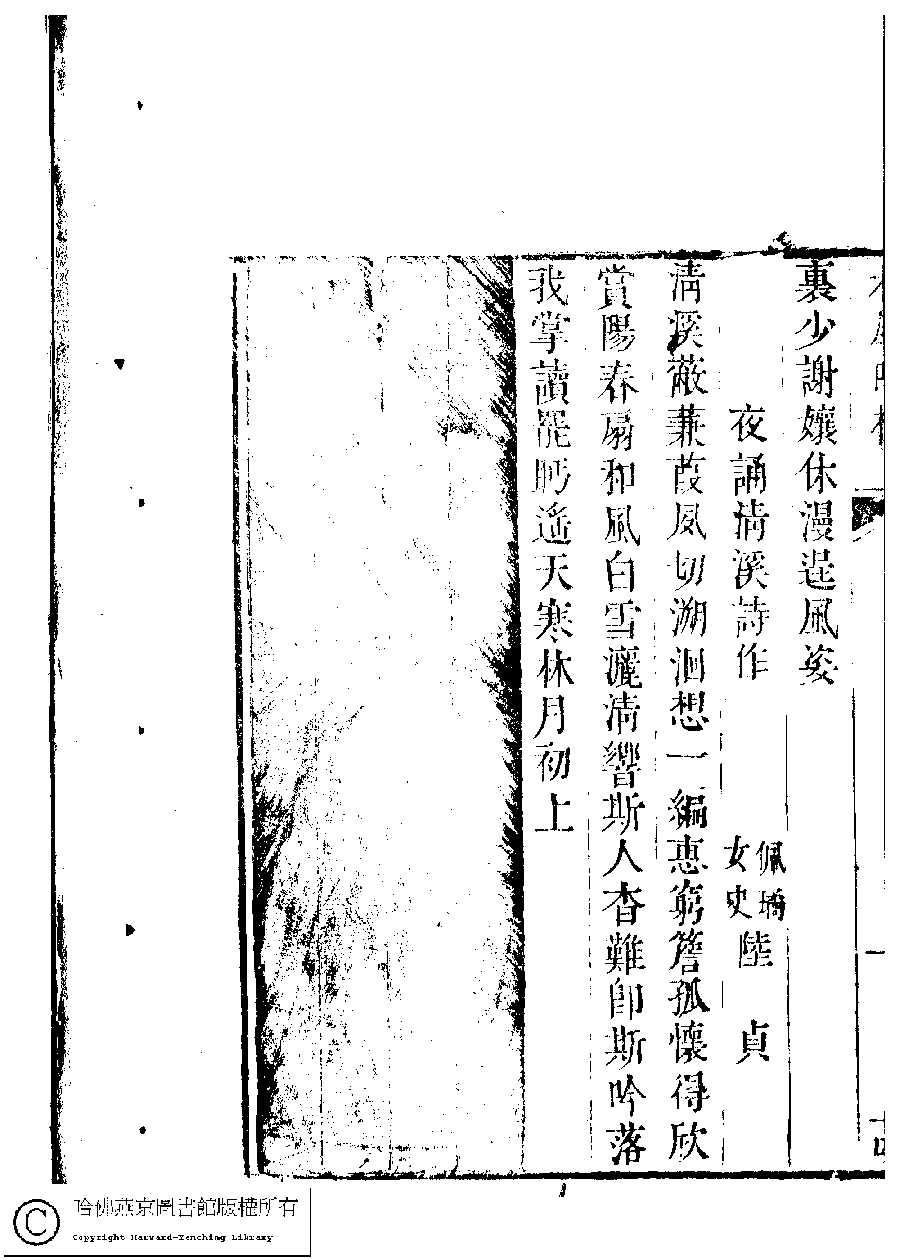 裏少謝孃休漫逞風姿
夜誦清溪詩作
佩璚
女史
陸貞
清溪蔽蒹葭夙切溯洄想一編惠窮簷孤懷得欣
賞陽春扇和風白雪灑清響斯人杳難卽斯吟落
我掌讀罷眄遙天寒林月初上
哈佛燕京圖書館版權所有
Copyright Harvard-Yenching Library